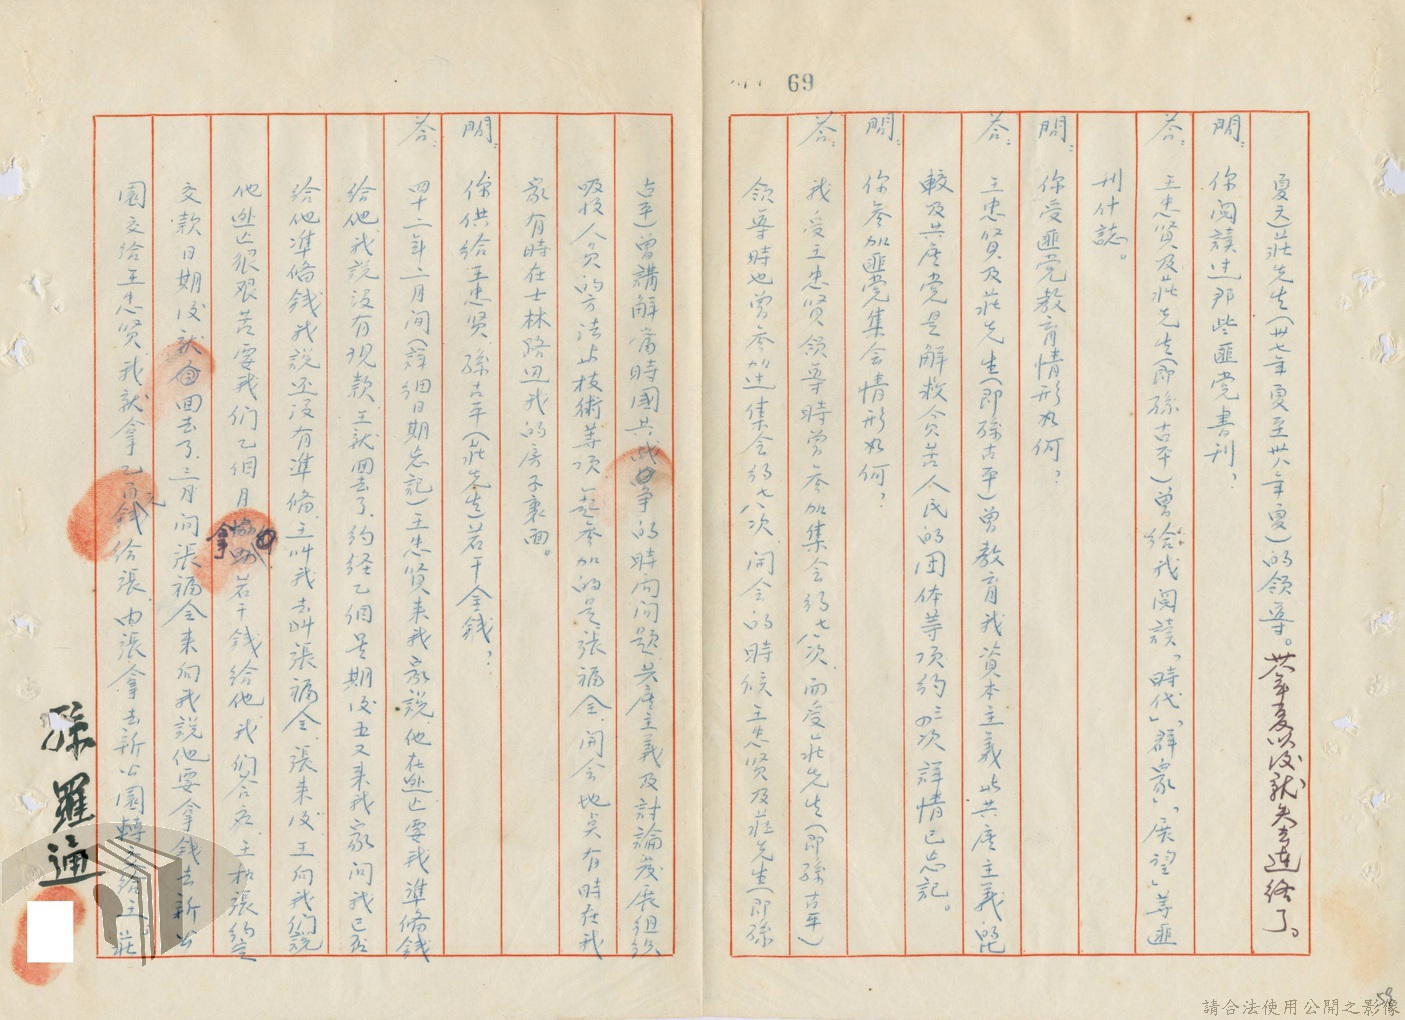 69
夏天)莊先生(卅七年夏至卅八年夏)的領導。卅八年夏以後就失去連絡了。
問：你閱讀过那些匪党書刊？
答：王忠賢及莊先生(即孫古平)曾給我閱讀「時代」「群众」「展望」等匪
刊什誌。
問：你受匪党教育情形如何？
答：王忠賢及莊先生(即孫古平)曾教育我資本主義与共產主義的比
較及共產党是解救貧苦人民的团体等項約三四次詳情已忘記。
問：你參加匪党集会情形如何？
答：我受王忠賢領導時曾參加集会約七八次，而受莊先生(即孫古平)
領導時也曾參加过集会約七八次，開会的時候王忠賢及莊先生(即孫
古平)曾講解當時國共战争的時局问题，共產主義及討論發展组织
吸收人员的方法与技術等項，一起參加的是張福全，開会地点有時在我
家有時在士林路边我的房子裏面。
問：你供給王忠賢、孫古平(莊先生)若干金錢？
答：四十二年二月间(詳细日期忘記)王忠賢来我家説，他在逃亡要我準備錢
給他，我説没有现款，王就回去了，約经乙個星期後王又来我家问我已否
給他準備錢，我説还没有準備，王叫我去叫張福全，張来後，王向我们説
他逃亡很艰苦要我们乙個月拿若干錢給他，我们答应，王和張約定
交款日期後就回去了，三月间張福全来向我説他要拿錢去新公
園交給王忠賢，我就拿乙百元錢給張，由張拿去新公園轉交給王。莊
孫羅通
58
請合法使用公開之影像